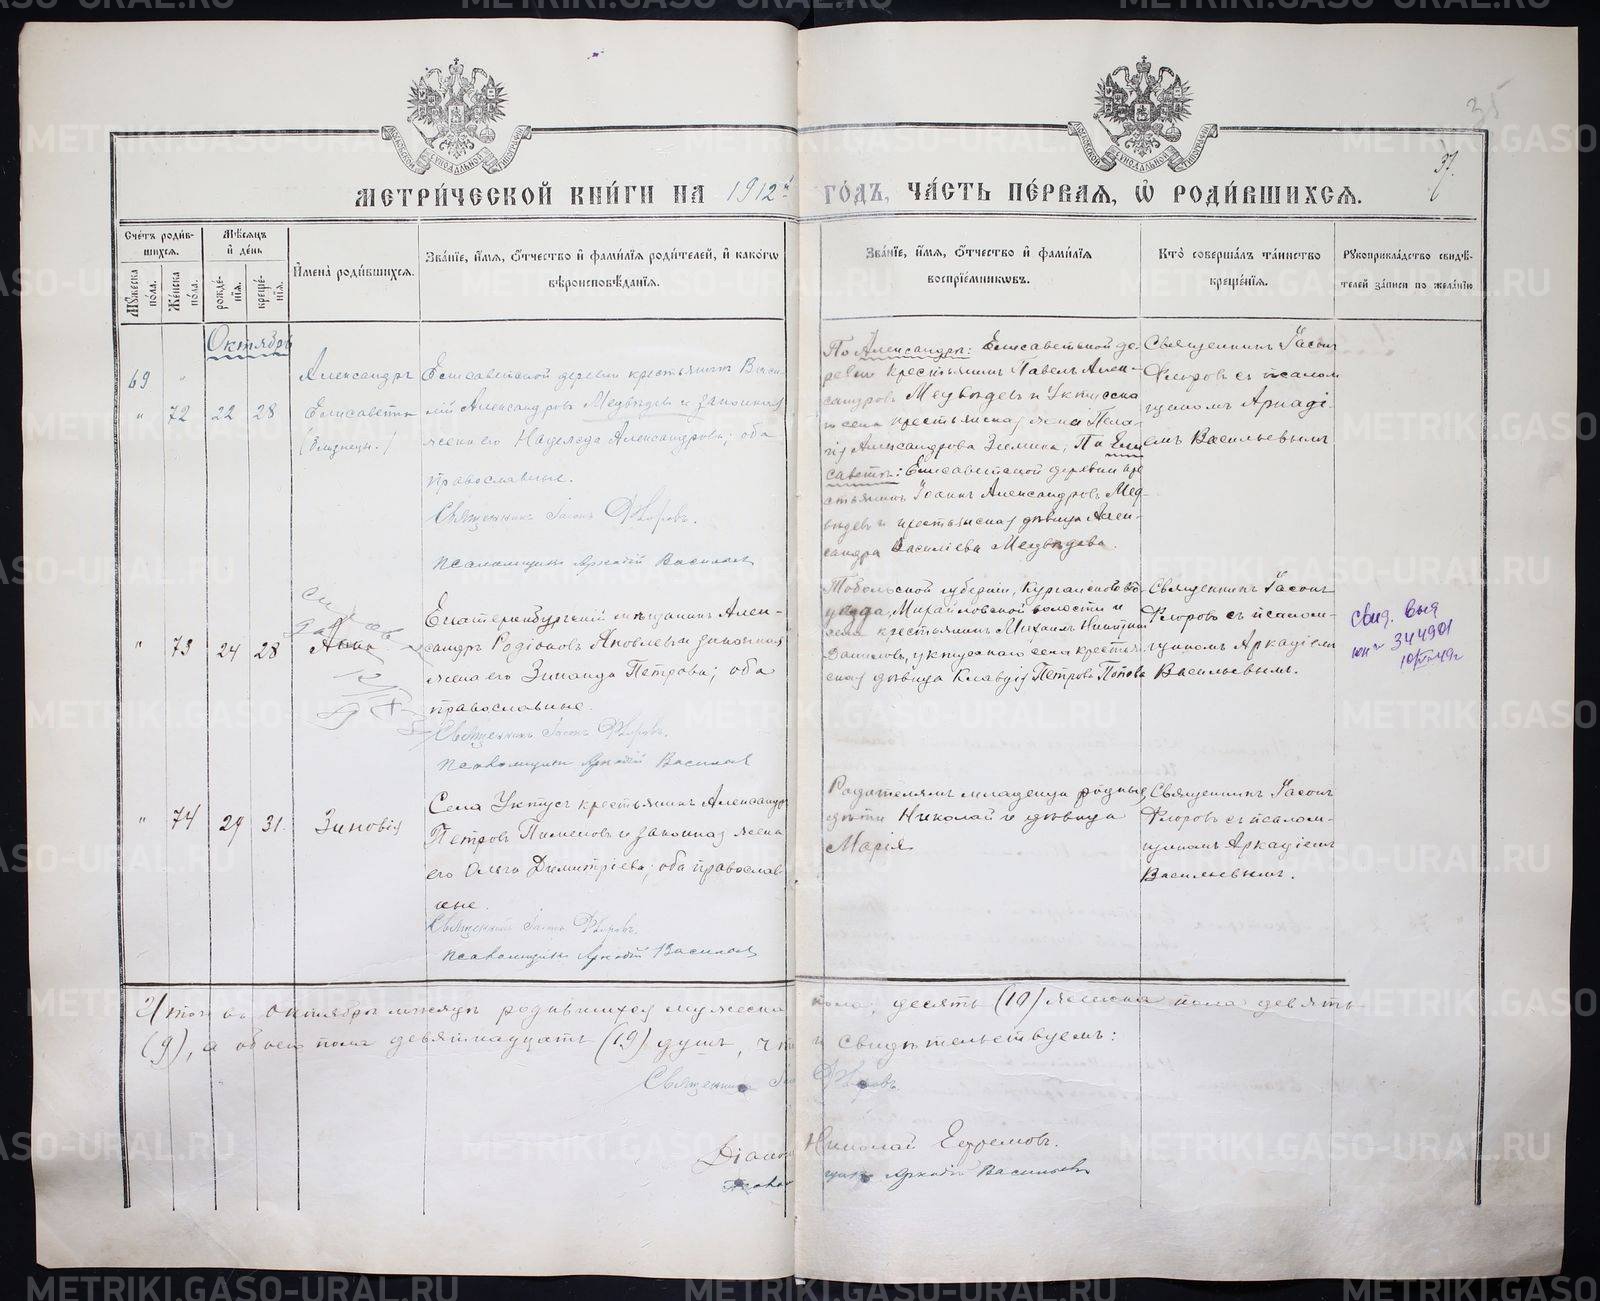 35
37.
МЕТРИ́ЧЕСКОЙ КНИ́ГИ НА 1912й ГО́ДЪ, ЧА́СТЬ ПЕ́РВАЯ, Ѡ РОДИ́ВШИХСЯ.
Сче́тъ роди́в-
шихся.
Мѣ́сяцъ
и́ де́нь
Му́жеска
по́ла.
Же́нска
по́ла.
рожде́-
нія.
креще́-
нія.
И́мена̀ роди́вшихся.
Зва́ніе, и́мя, ѻ́тчество и́ фами́лія роди́телей, и́ како́гѡ
вѣроисповѣ́данія.
Зва́ніе, и́мя, ѻ́тчество и́ фами́лія
воспріе́мниковъ.
Кто̀ соверша́лъ та́инство
креще́нія.
Рукоприкла́дство свидѣ́-
телей за́писи по жела́нію
Октябрь
69 "
" 72 22 28
Александръ
Елисавета
(близнецы.)
Елисаветской деревни крестьянинъ Васи-
лій Александровъ Медвѣдевъ и законная
жена его Надежда Александрова; оба
православные.
Священникъ Іасонъ Флоровъ.
Псаломщикъ Аркадій Васильевъ
По Александрѣ: Елисаветской де-
ревни крестьянинъ Павелъ Алек-
сандровъ Медвѣдевъ и Уктусска-
го села крестьянская жена Пела-
гія Александрова Зюмина, По Ели-
саветѣ: Елисаветской деревни кре-
стьянинъ Іоаннъ Александровъ Мед-
вѣдевъ и крестьянская дѣвица Алек-
сандра Василіева Медвѣдева.
Священникъ Іасонъ
Флоровъ съ псалом-
щикомъ Аркаді-
емъ Васильевымъ
" 73 24 28
Анна
Екатеринбургскій мѣщанинъ Алек-
сандръ Родіоновъ Яковлевъ и законная
жена его Зинаида Петрова; оба
православные.
Священникъ Іасонъ Флоровъ.
Псаломщикъ Аркадій Васильевъ
Тобольской губерніи, Курганскаго у-
ѣзда, Михайловской волости и
села крестьянинъ Михаилъ Никитинъ
Вавиловъ, уктусскаго села крестьян-
ская дѣвица Клавдія Петрова Попова
Священникъ Іасонъ
Флоровъ съ псалом-
щикомъ Аркадіемъ
Васильевымъ.
свид. выд
юн № 344901
10/VI-49г
" 74 29 31.
Зиновія
Села Уктусъ крестьянинъ Александръ
Петровъ Пименовъ и законная жена
его Ольга Димитріева; оба православ-
ные.
Священникъ Іасонъ Флоровъ.
Псаломщикъ Аркадій Васильевъ
Родителямъ младенца родные
дѣти Николай и дѣвица
Марія
Священникъ Іасонъ
Флоровъ съ псалом-
щикомъ Аркадіемъ
Васильевымъ.
Итого въ октябрѣ мѣсяцѣ родившихся мужеска пола, десять (10) женска пола девять
(9), а обоего пола девятнадцать (19) душъ, что и свидѣтельствуемъ:
Священникъ Іасонъ Флоровъ.
Діаконъ Николай Ефремовъ.
Псаломщикъ Аркадій Васильевъ